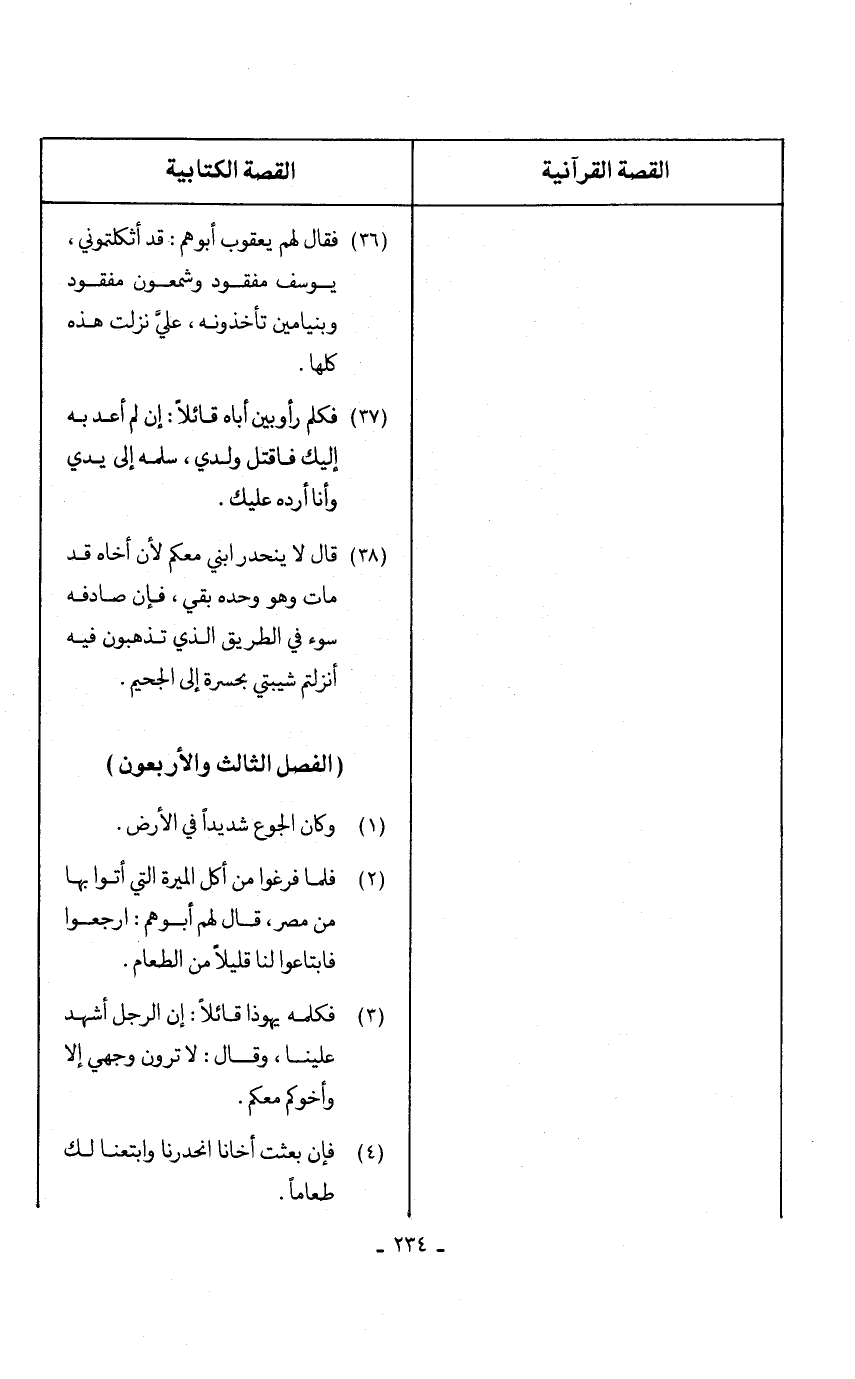 القصة القرآنية
القصة الكتابية
(٣٦) فقال لهم يعقوب أبوهم : قد أثكلتموني ،
يوسف مفقود وشمعون مفقود
وبنيامين تأخذونه ، عليَّ نزلت هذه
كلها .
(٣٧) فكلم رأوبين أباه قائلاً : إن لم أعد به
إليك فاقتل ولدي ، سلمه إلى يدي
وأنا أرده عليك .
(٣٨) قال لا ينحدر ابني معكم لأن أخاه قد
مات وهو وحده بقي ، فإن صادفه
سوء في الطريق الذي تذهبون فيه
أنزلتم شيبتي بحسرة إلى الجحيم .
( الفصل الثالث والأربعون )
(١) وكان الجوع شديداً في الأرض .
(٢) فلما فرغوا من أكل الميرة التي أتوا بها
من مصر ، قال لهم أبوهم : ارجعوا
فابتاعوا لنا قليلاً من الطعام .
(٣) فكلمه يهوذا قائلاً : إن الرجل أشهد
علينا ، وقال : لا ترون وجهي إلا
وأخوكم معكم .
(٤) فإن بعثت أخانا انحدرنا وابتعنا لك
طعاماً .
- ٢٣٤ -